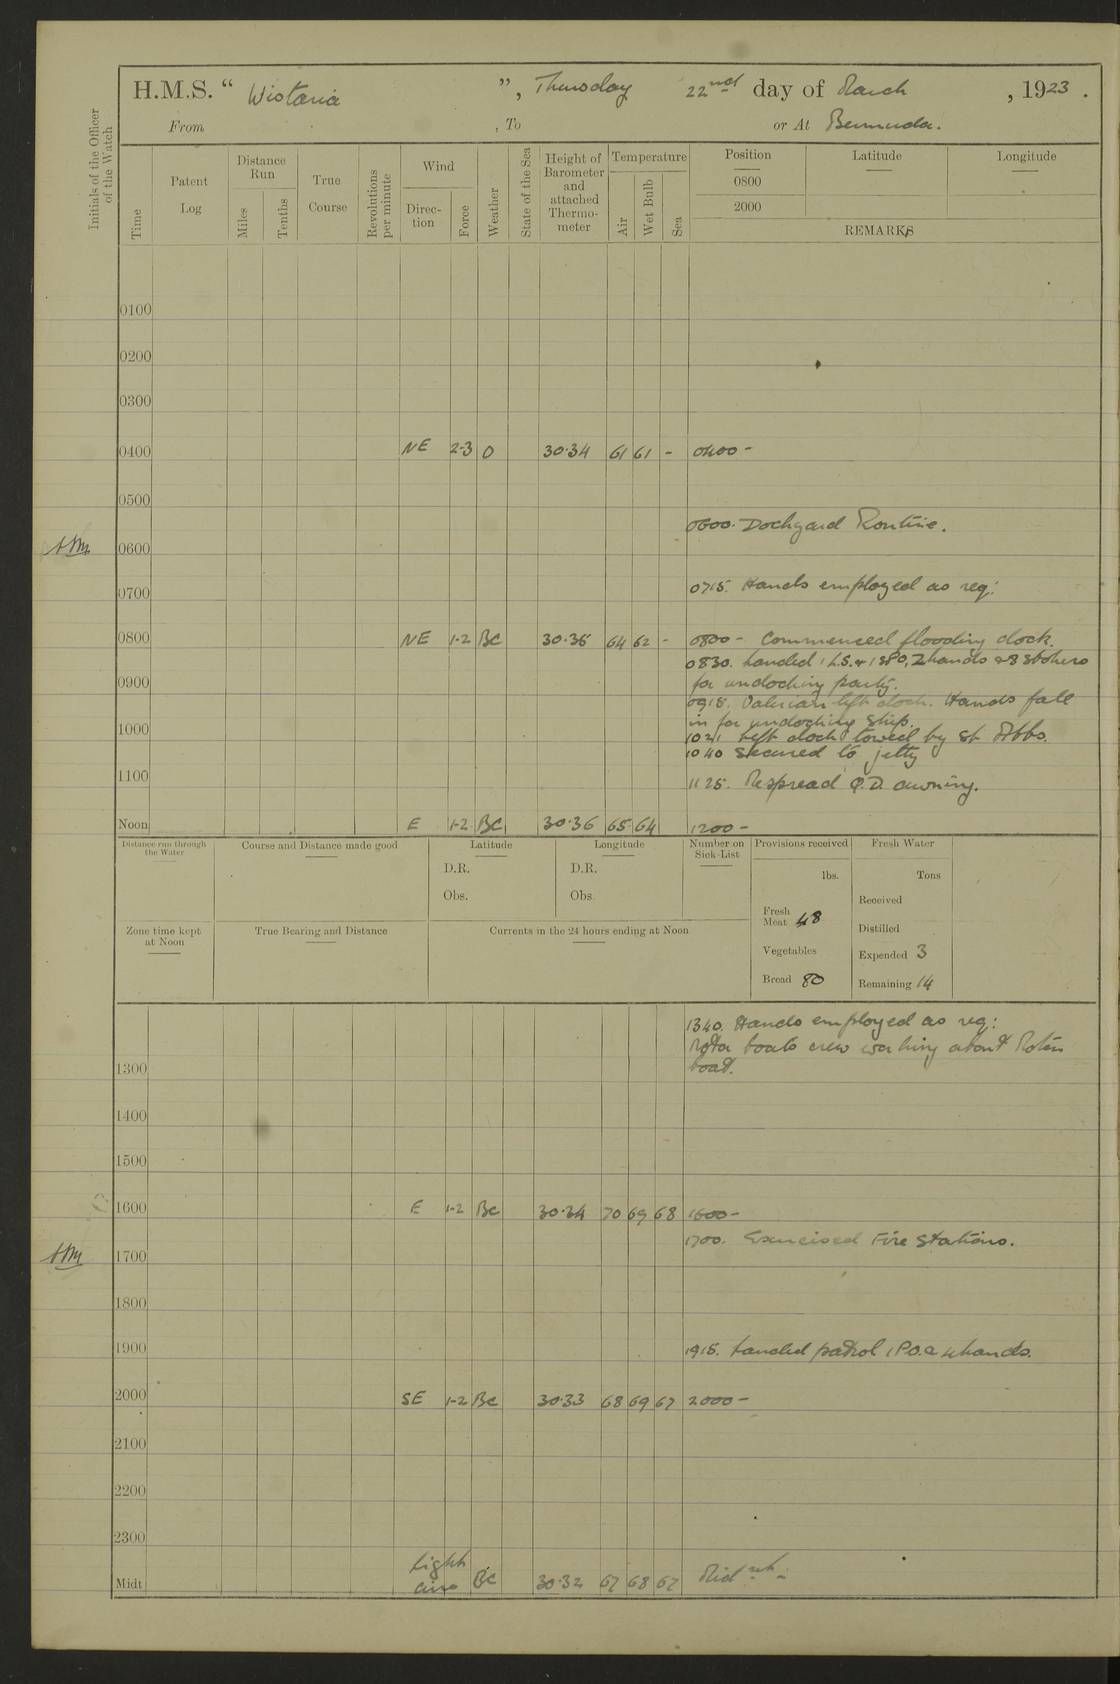 H.M.S. “ Wistaria ”, Thursday 22nd day of March , 1923 .
From , To or At Bermuda.
Initials of the Officer of the Watch
Time
Patent Log
Distance Run
Miles
Tenths
True Course
Revolutions per minute
Wind
Direction
Force
Weather
State of the Sea
Height of Barometer and attached Thermometer
Temperature
Air
Wet Bulb
Sea
Position Latitude Longitude
0800
2000
REMARKS
0100
0200
0300
0400 NE 2-3 O 30·34 61 61 - 0400 -
0500
0600. Dockyard Routine.
0600
0700 0715. Hands employed as req:
0800 NE 1-2 BC 30·35 64 62 - 0800 - Commenced flooding dock.
0830. Landed 1 L.S. & 1 SPO, 2 hands & 8 Stokers
0900 for undocking party.
0915. Valerian left dock. Hands fall
in for undocking ship.
1000 1021 Left dock towed by St Abbs.
1040 Secured to jetty
1100 1125. Respread Q.D. awning.
Noon E 1-2 BC 30·36 65 64 1200 -
Distance run through the Water
Course and Distance made good
Latitude
D.R.
Obs.
Longitude
D.R.
Obs.
Number on Sick List
Provisions received
lbs.
Fresh Meat 48
Vegetables
Bread 80
Fresh Water
Tons
Received
Distilled
Expended 3
Remaining 14
Zone time kept at Noon
True Bearing and Distance
Currents in the 24 hours ending at Noon
1340. Hands employed as req:
Motor boats crew working about Motor
1300 boat.
1400
1500
1600 E 1-2 BC 30·34 70 69 68 1600 -
1700. Exercised Fire Stations.
1700
1800
1900 1915. Landed patrol 1 P.O. & 4 hands.
2000 SE 1-2 BC 30·33 68 69 67 2000 -
2100
2200
2300
Midt Light airs BC 30·32 67 68 67 Midnt -